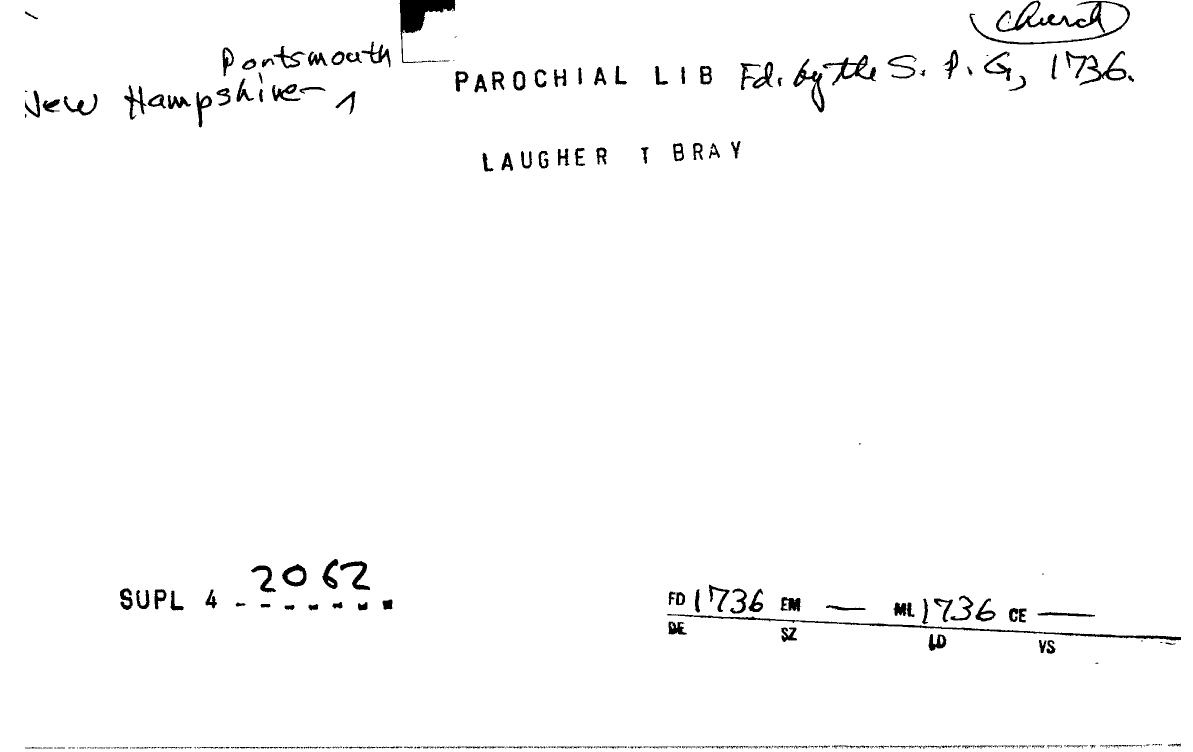 Church
Portsmouth
New Hampshire
PAROCHIAL LIB Fd. by the S. P. G, 1736.
LAUGHER T BRAY
SUPL 4 2062
FD 1736 EM — ML 1736 CE —
DE SZ LD VS